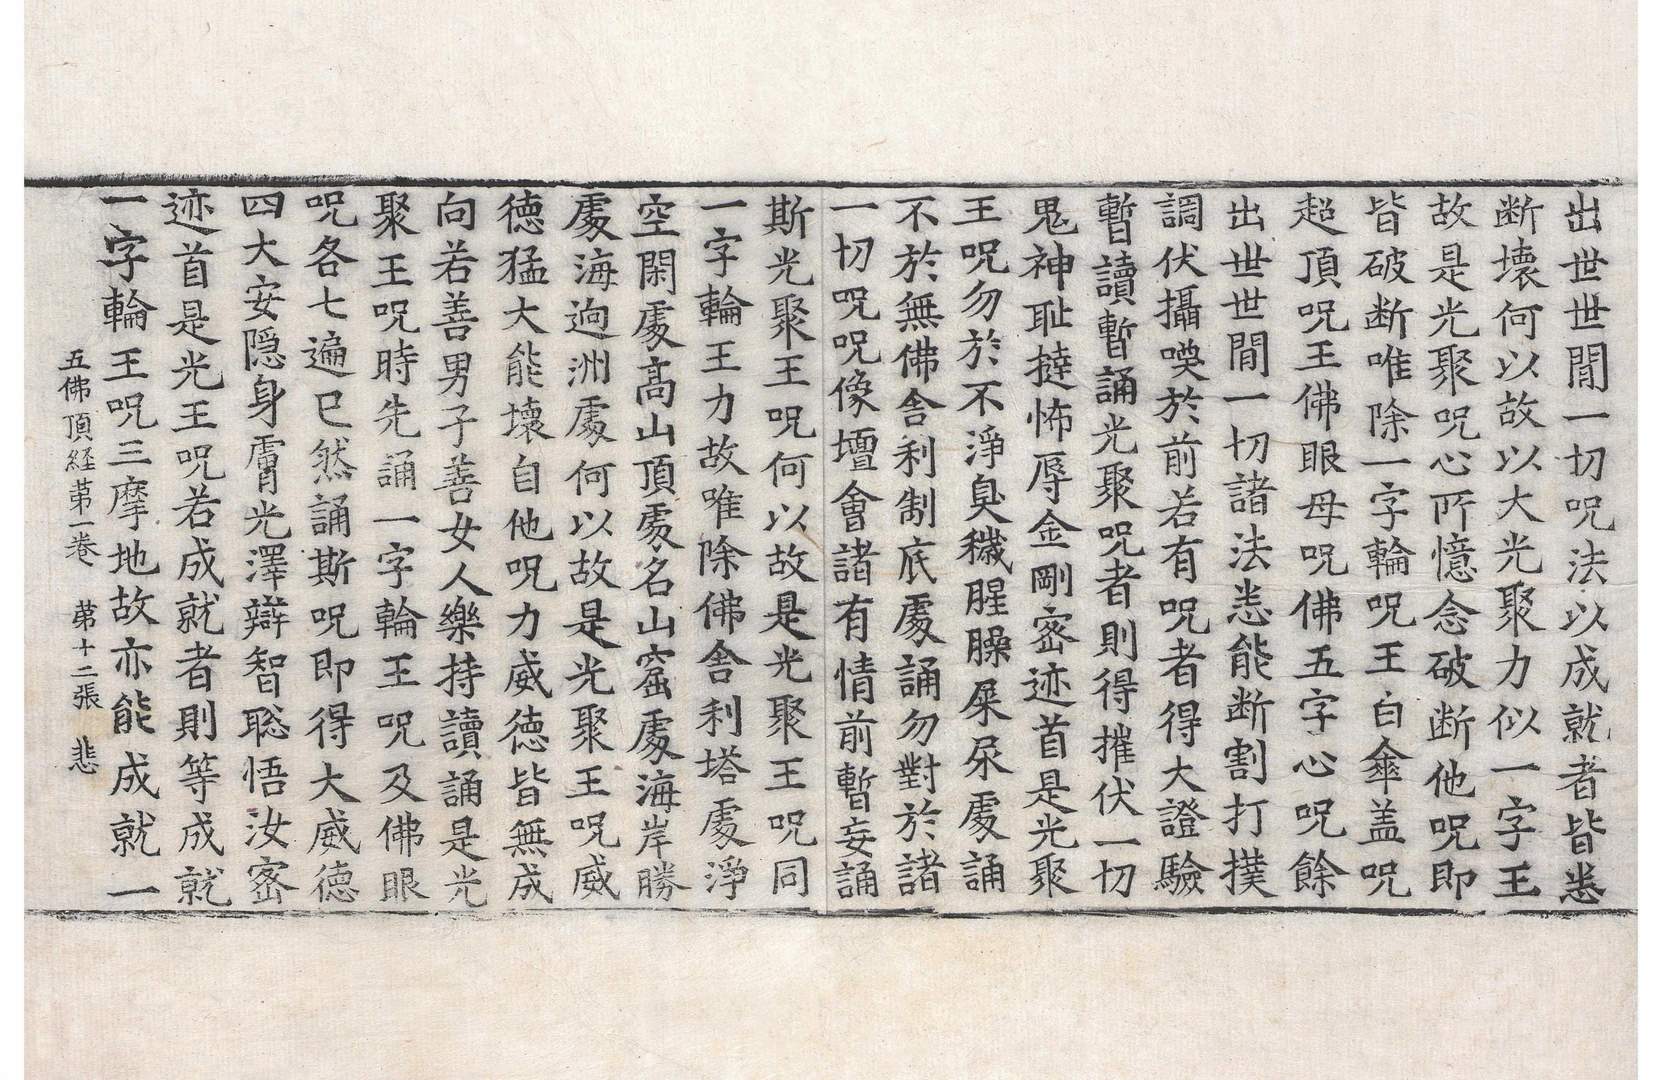 出世世間一切呪法以成就者皆悉
断壞何以故以大光聚力似一字王
故是光聚呪心所憶念破断他呪即
皆破断唯除一字輪呪王白傘盖呪
超頂呪王佛眼母呪佛五字心呪餘
出世世間一切諸法悉能断割打撲
調伏攝喚於前若有呪者得大證驗
暫讀暫誦光聚呪者則得摧伏一切
鬼神恥撻怖辱金剛宻迹首是光聚
王呪勿於不淨臭穢腥臊屎尿處誦
不於無佛舍利制底處誦勿對於諸
一切呪呪像壇會諸有情前暫妄誦
斯光聚王呪何以故是光聚王呪同
一字輪王力故唯除佛舍利塔處淨
空閑處高山頂處名山窟處海岸勝
處海逈洲處何以故是光聚王呪威
德猛大能壞自他呪力威德皆無成
向若善男子善女人樂持讀誦是光
聚王呪時先誦一字輪王呪及佛眼
呪各七遍已然誦斯呪即得大威德
四大安隠身膚光澤辯智聡悟汝宻
迹首是光王呪若成就者則等成就
一字輪王呪三摩地故亦能成就一
五佛頂経苐一卷 苐十二張 悲